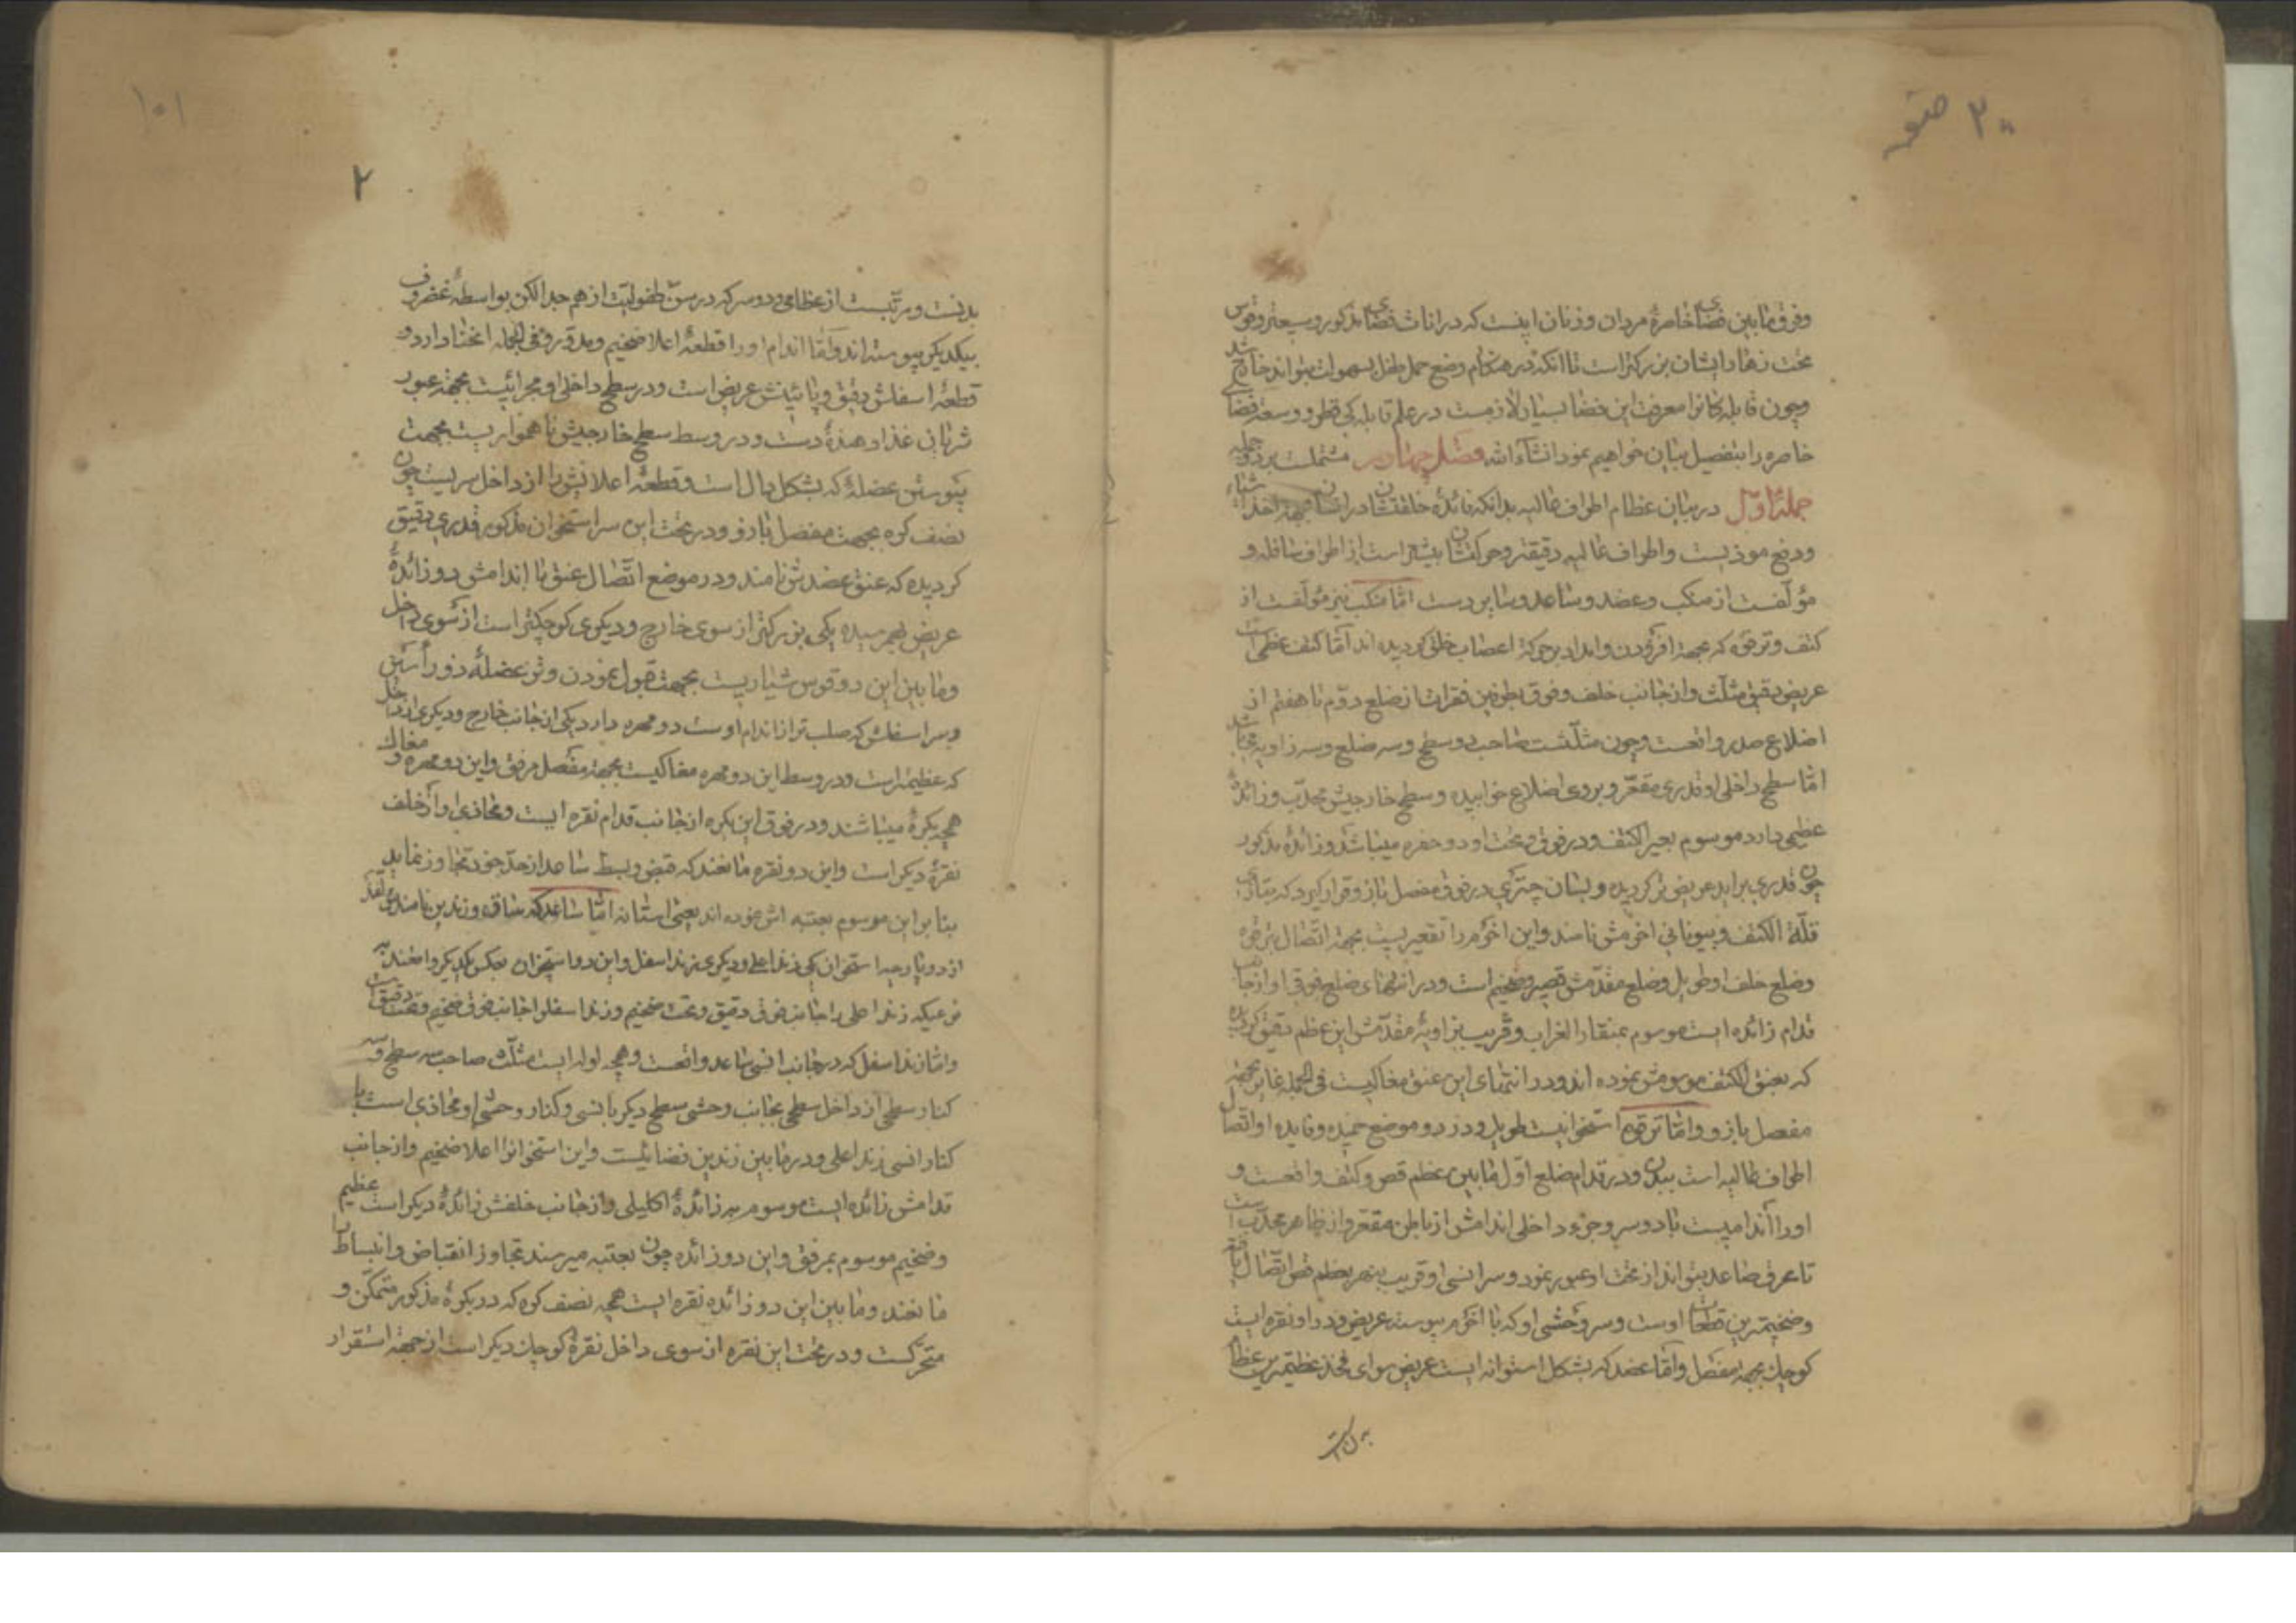 وفرق مابین فضای خاصرهٔ مردان وزنان اینست که در اناث فضای مذکور وسیعتر وقوس
تحت زهار ایشان بزرکتر است تا آنکه در هنکام وضع حمل طفل بسهولت بتواند خارج شد
وچون قابله کانرا معرفت این فضا بسیار لازمست در علم قابله کی قطر و وسعت فضای
خاصره را بتفصیل بیان خواهیم نمود انشاءالله فصل چهارم مشتملست بر دو جمله
جملهٔ اول در بیان عظام اطراف عالیه بدانکه فائدهٔ خلقتشان در انسان بجهة اخذ اشیاء
ودفع موذیست واطراف عالیه دقیقتر وحرکتشان بیشتر است از اطراف سافله و
مؤلفست از منکب وعضد وساعد وسایر دست امّا منکب نیز مؤلفست از
کتف وترقوه که بجهة افزودن وامداد بحرکة اعصاب خلق کردیده اند امّا کتف عظمی است
عریض دقیق مثلّث واز جانب خلف وفوق بطرفین فقرات از ضلع دوّم تا هفتم از
اضلاع صدر واقعست وچون مثلّثست صاحب دو سطح وسه ضلع وسه زاویه میباشد
امّا سطح داخلی او قدری مقعّر وبروی اضلاع خوابیده وسطح خارجیش محدّب وزائدهٔ
عظیمی دارد موسوم بعیر الکتف ودر فوق وتحت او دو حفره میباشد وزائدهٔ مذکور
چون قدری براید عریض تر کردیده وبسان چتری در فوق مفصل بازو قرار کیرد که بتازی
قلّة الکتف وبیونانی اخرمش نامند واین اخرم را تقعیریست بجهة اتّصال بترقوه
وضلع خلف او طویل وضلع مقدّمش قصیر وضخیم است ودر انتهای ضلع فوقی او از جانب
قدام زائده ایست موسوم بمنقار الغراب وقریب بزاویهٔ مقدّمش این عظم دقیق کردیده
که بعنق الکتف موسومش نموده اند ودر انتهای این عنق مغاکیست فی الجمله غایر بجهة
مفصل بازو وامّا ترقوه استخوانیست طویل ودر دو موضع خمیده وفایده او اتّصال
اطراف عالیه است ببدن ودر قدام ضلع اوّل مابین عظم قص وکتف واقعست و
او را اندامیست با دو سر وجزء داخلی اندامش از باطن مقعّر واز ظاهر محدّب است
تا عرق صاعد بتواند از تحت او عبور نمود وسر انسی او قریب بعظم قص اتّصال یافته
وضخیمترین قطعات اوست وسر وحشی او که با اخرم پیوسته عریض ودر او نقره ایست
کوچک بجهة مفصل وامّا عضد که بشکل استوانه ایست عریض سوای فخذ عظیمترین عظام
بدنست
بدنست ومرکّبست از عظامی ودو سر که در سنّ طفولیّت از هم جدا لکن بواسطهٔ غضروف
بیکدیکر پیوسته اند وامّا اندام او را قطعهٔ اعلا ضخیم ومدوّر وفی الجمله انحنا دارد و
قطعهٔ اسفلش دقیق وپائینش عریض است ودر سطح داخلی او مجرائیست بجهة عبور
شریان غذا دهندهٔ دست ودر وسط سطح خارجیش ناهمواریست بجهت
پیوستن عضلهٔ که بشکل دال است وقطعهٔ اعلائیش را از داخل سریست چون
نصف کره بجهت مفصل بازو ودر تحت این سر استخوان مذکور قدری دقیق
کردیده که عنق عضدش نامند ودر موضع اتّصال عنق با اندامش دو زائدهٔ
عریض بهم رسیده یکی بزرکتر از سوی خارج ودیکری کوچکتر است از سوی داخل
ومابین این دو قوس شیاریست بجهت قبول نمودن وتر عضلهٔ ذو رأسین
وسر اسفلش که صلب تر از اندام اوست دو مهره دارد یکی از جانب خارج ودیکری از داخل
که عظیمتر است ودر وسط این دو مهره مغاکیست بجهة مفصل مرفق واین دو مهره و مغاک
همچه بکرهٔ میباشند ودر فوق این بکره از جانب قدام نقره ایست ومحاذی او از خلف
نقرهٔ دیکر است واین دو نقره مانعند که قبض وبسط ساعد از حدّ خود تجاوز نماید
بنابراین موسوم بعتبه اش نموده اند یعنی استانه امّا ساعد که ساق وزندین نامند مؤلفند
از دو پارچه استخوان یکی زند اعلی ودیکری زند اسفل واین دو استخوان بعکس یکدیکر واقعند به
نوعیکه زند اعلی را جانب فوق دقیق وتحت ضخیم وزند اسفل را جانب فوق ضخیم وتحت دقیق است
وامّا زند اسفل که در جانب انسی ساعد واقعست وهمچه لوله ایست مثلّث صاحب سه سطح وسه
کنار سطحی از داخل سطحی بجانب وحشی سطح دیکر بانسی وکنار وحشی او محاذی است با
کنار انسی زند اعلی ودر مابین زندین فضائیست واین استخوانرا اعلا ضخیم واز جانب
قدامش زائده ایست موسوم بزائدهٔ اکلیلی واز جانب خلفش زائدهٔ دیکر است عظیم
وضخیم موسوم بمرفق واین دو زائده چون بعتبه میرسند تجاوز انقباض وانبساط را
مانعند ومابین این دو زائده نقره ایست همچه نصف کره که در بکرهٔ مذکور متمکّن و
متحرّکست ودر تحت این نقره از سوی داخل نقرهٔ کوچک دیکر است از جهة استقرار